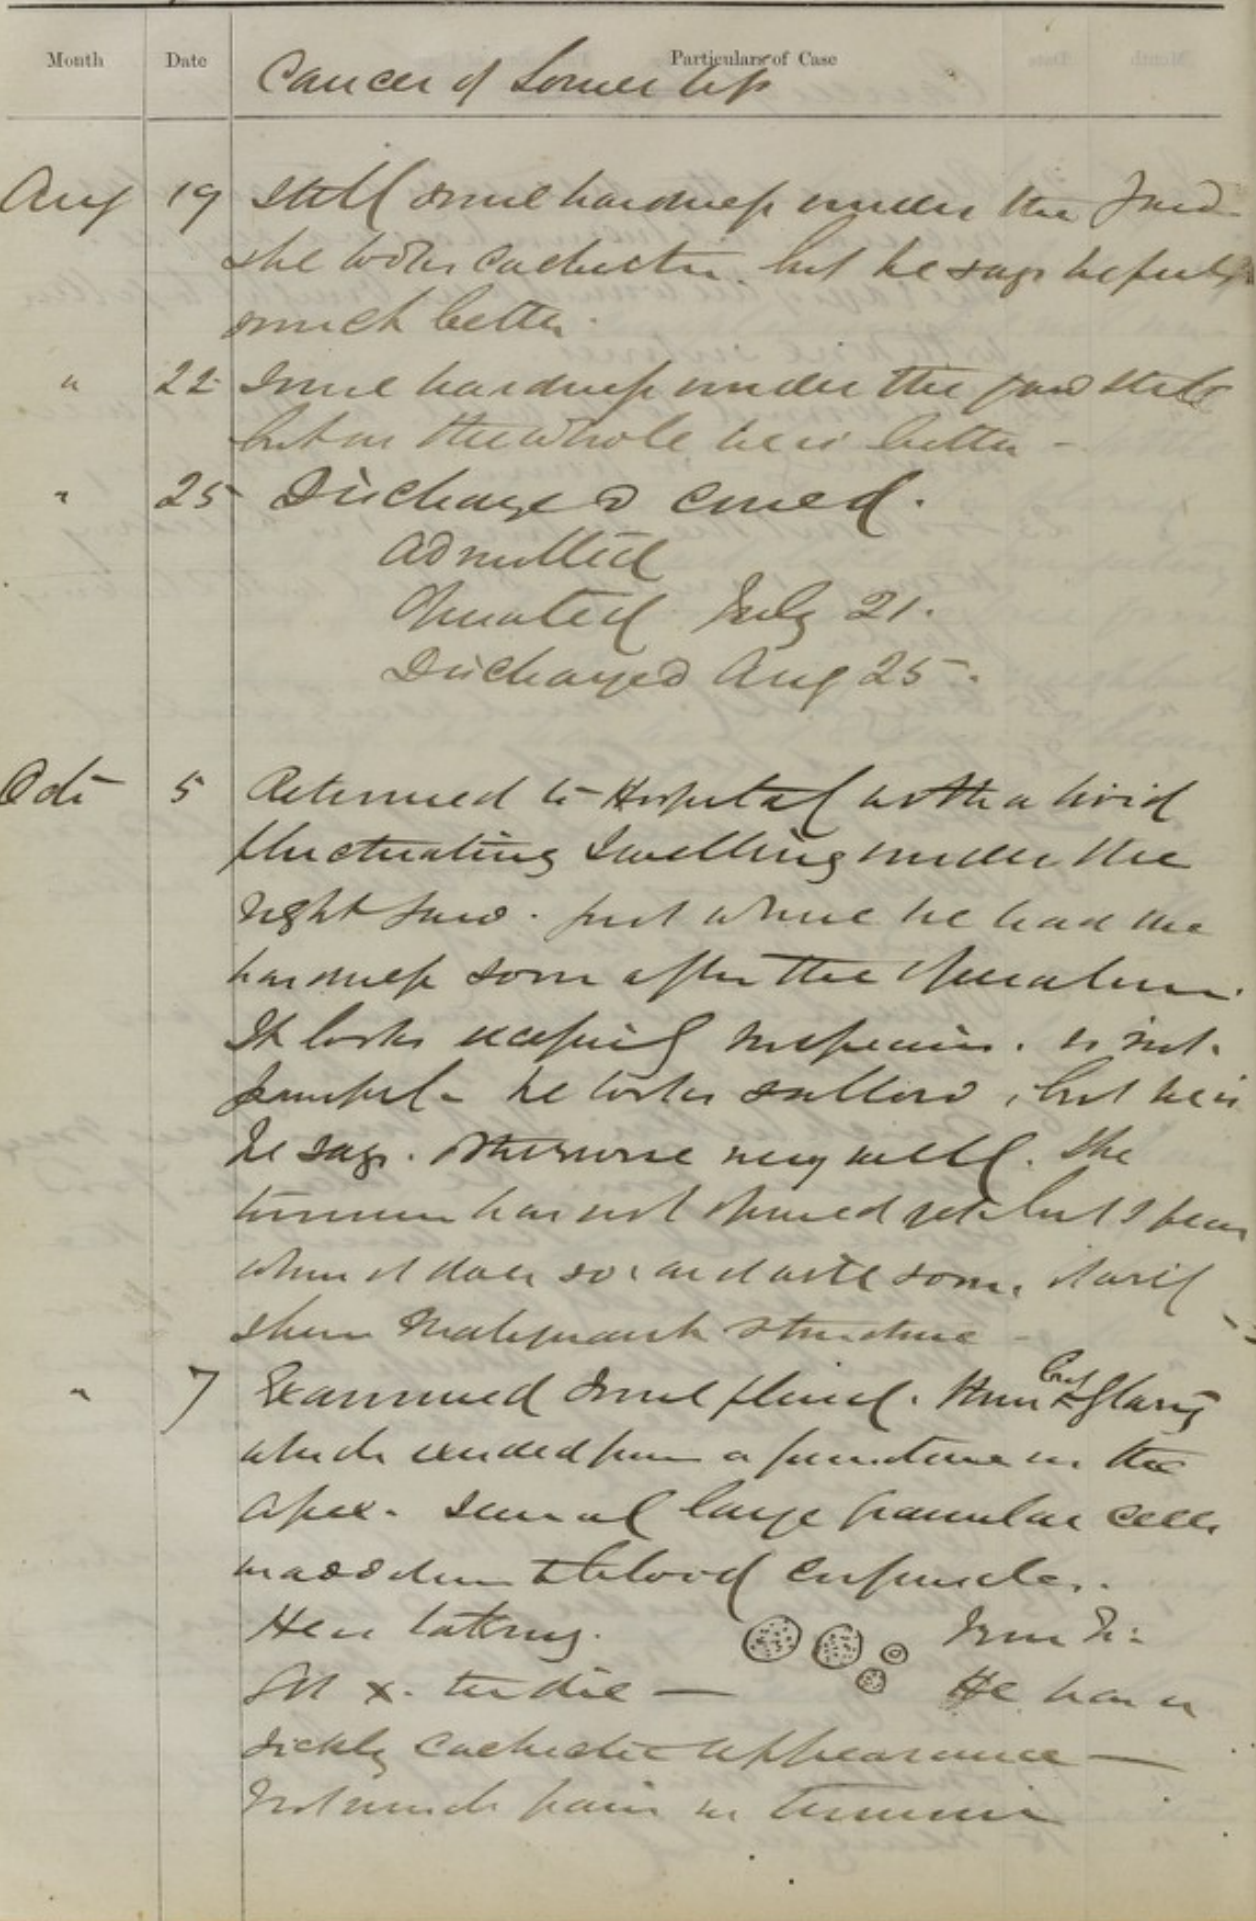 Month Date Particulars of Case
Cancer of Lower Lip
Aug 19 Still some hardness under the Jaw
he looks cachectic. but he says he feels
much better.
" 22 Some hardness under the jaw still
but on the whole he is better -
" 25 Discharged cured.
Admitted
Operated July 21.
Discharged Aug 25.
Oct 5 Returned to Hospital with a livid
fluctuating Swelling under the
right Jaw. just where he had the
hardness soon after the operation.
It looks suspicious. is not
painful - he looks sallow, but he is
he says. otherwise very well. The
tumour has not opened yet but I fear
when it does so, and it will soon, it will
show Malignant structure -
" 7 Examined some fluid. &
which exuded from a puncture in the
apex. Several large granular cells
in addition to blood corpuscles.
He has a
sickly cachectic appearance —
Not much pain in tumour